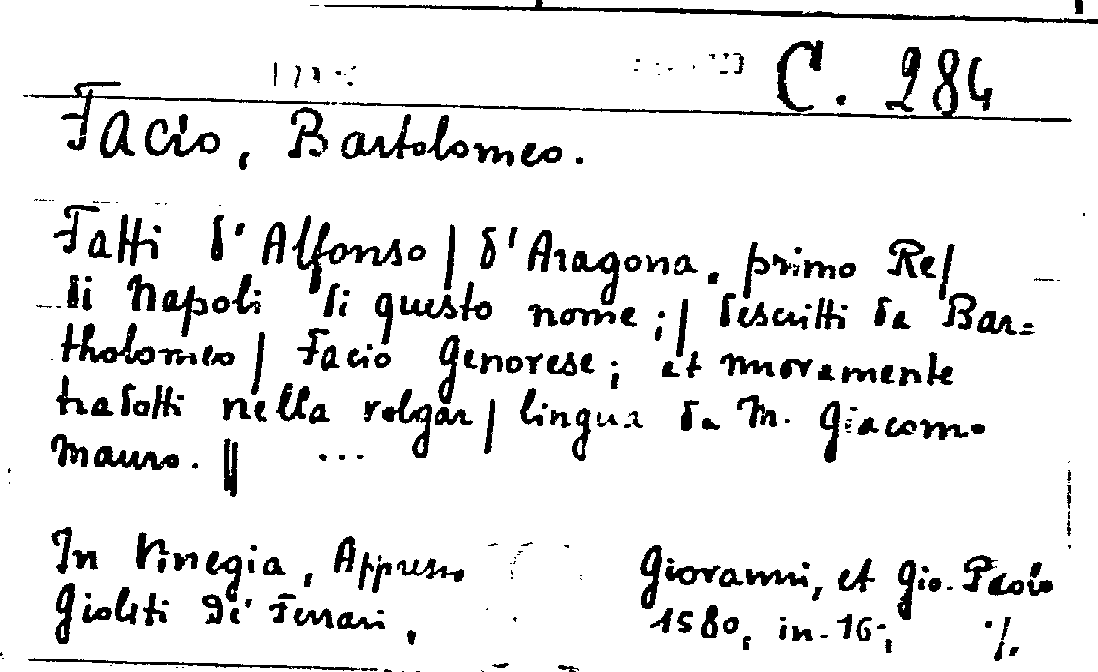 C. 284
Facio, Bartolomeo.
Fatti d'Alfonso | d'Aragona, primo Re |
di Napoli di questo nome; | descritti da Bar=
tholomeo | Facio Genovese; et nuovamente
tradotti nella volgar | lingua da M. Giacomo
Mauro. || ...
In Vinegia, Appresso Giovanni, et Gio. Paolo
Gioliti De' Ferrari, 1580, in-16°, ·/.